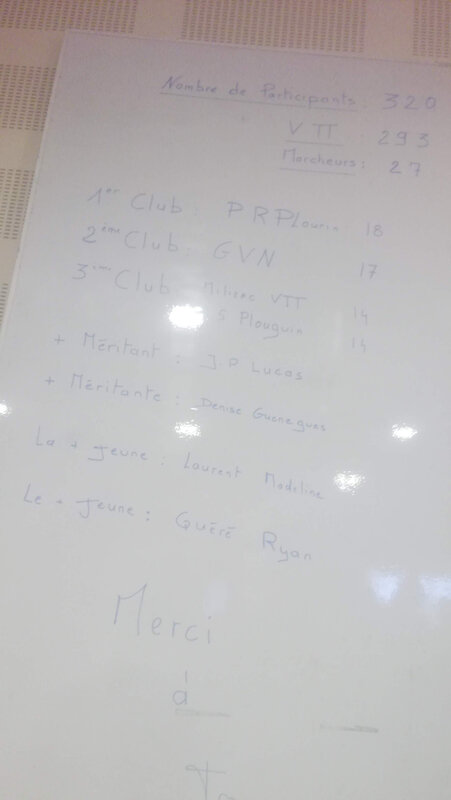 Nombre de Participants : 320
VTT : 293
Marcheurs : 27
1er Club : PRPlourin 18
2ème Club : GVN 17
3ème Club : Milizac VTT 14
S Plouguin 14
+ Méritant : J.P Lucas
+ Méritante : Denise Guenegues
La + jeune : Laurent Madeline
Le + jeune : Quéré Ryan
Merci
à